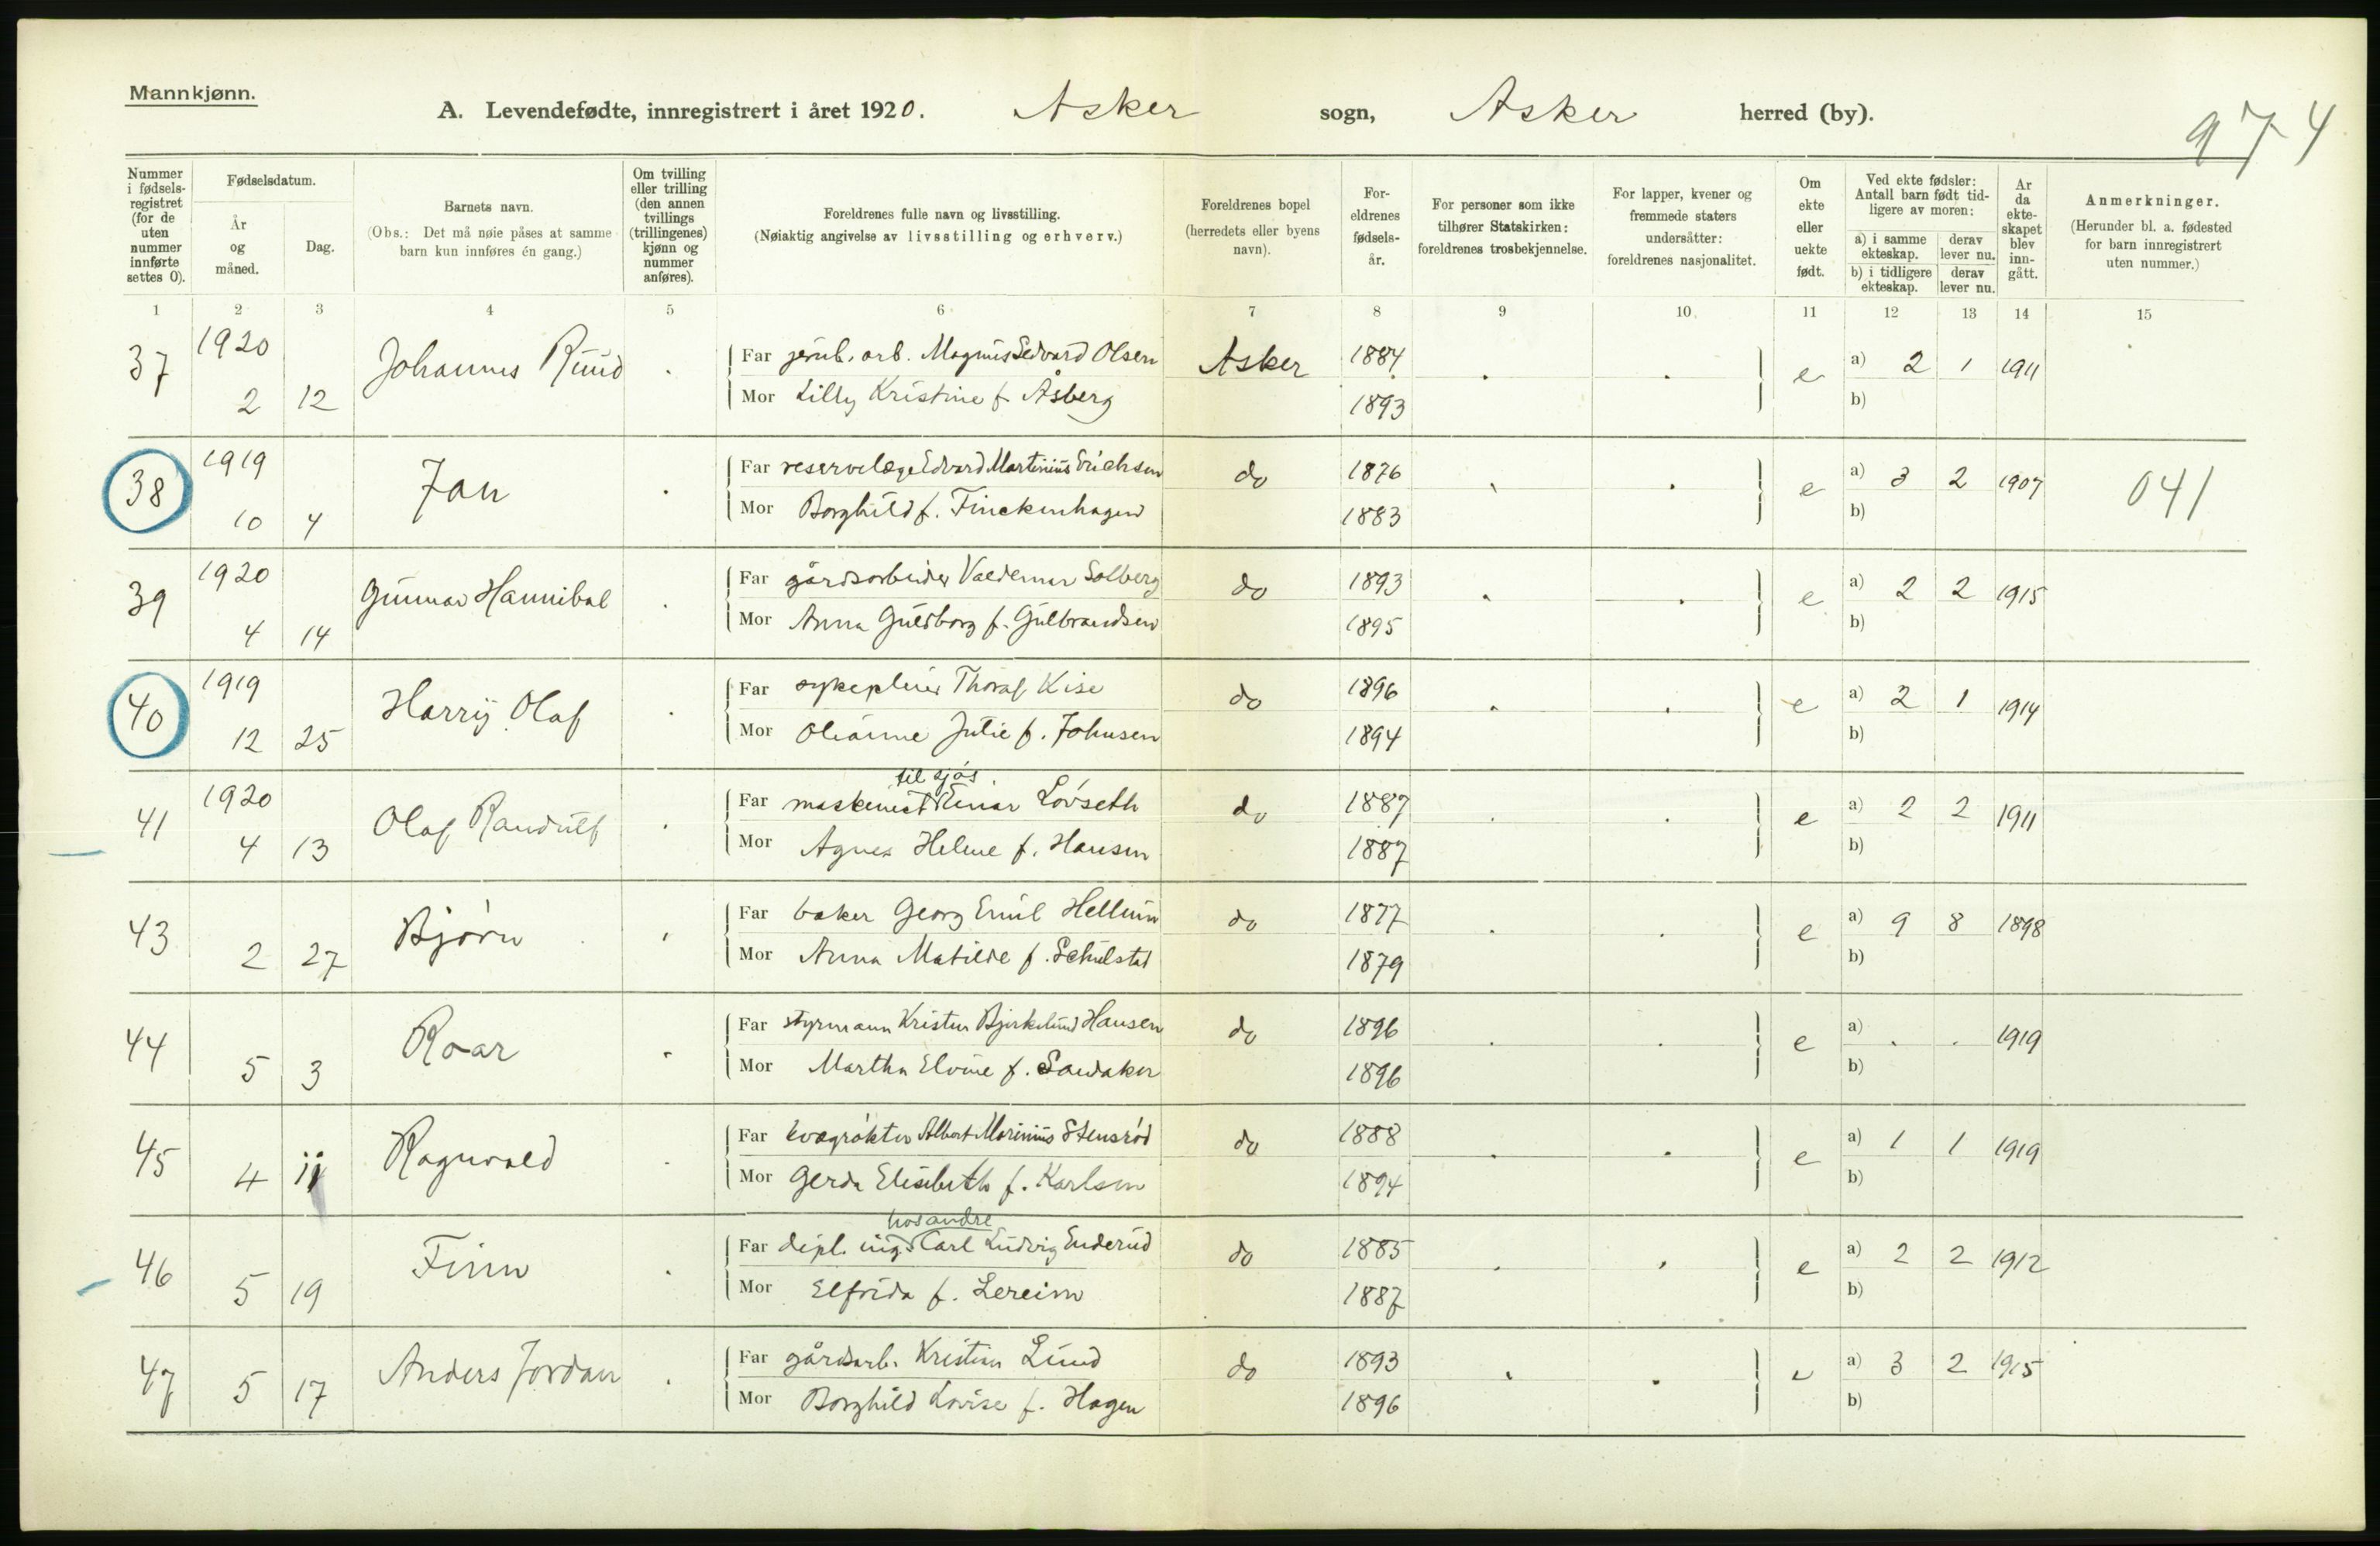 Mannkjønn.
A. Levendefødte, innregistrert i året 1920. Asker sogn, Asker herred (by).
974
Nummer i fødsels-registret (for de uten nummer innførte settes 0).
Fødselsdatum.
År og måned.
Dag.
Barnets navn.
(Obs.: Det må nøie påses at samme barn kun innføres én gang.)
Om tvilling eller trilling (den annen tvillings (trillingenes) kjønn og nummer anføres).
Foreldrenes fulle navn og livsstilling.
(Nøiaktig angivelse av livsstilling og erhverv.)
Foreldrenes bopel (herredets eller byens navn).
For-eldrenes fødsels-år.
For personer som ikke tilhører Statskirken: foreldrenes trosbekjennelse.
For lapper, kvener og fremmede staters undersåtter: foreldrenes nasjonalitet.
Om ekte eller uekte født.
Ved ekte fødsler: Antall barn født tid-ligere av moren:
a) i samme ekteskap. derav lever nu.
b) i tidligere ekteskap. derav lever nu.
Ar da ekte-skapet blev inn-gått.
Anmerkninger.
(Herunder bl. a. fødested for barn innregistrert uten nummer.)
1 2 3 4 5 6 7 8 9 10 11 12 13 14 15
37 1920 2 12 Johannes Ruud . Far jernb. arb. Magnus Edvard Olsen Asker 1884 . . e a) 2 1 1911
Mor Lilly Kristine f. Åsberg 1893 b)
38 1919 10 4 Jan . Far reservelæge Edvard Martinius Erichsen do 1876 . . e a) 3 2 1907 041
Mor Borghild f. Finckenhagen 1883 b)
39 1920 4 14 Gunnar Hannibal . Far gårdsarbeider Valdemar Solberg do 1893 . . e a) 2 2 1915
Mor Anna Guldborg f. Gulbrandsen 1895 b)
40 1919 12 25 Harry Olaf . Far sykepleier Thoralf Kise do 1896 . . e a) 2 1 1914
Mor Olianne Julie f. Johnsen 1894 b)
til sjøs.
41 1920 4 13 Olaf Randulf . Far maskinist Einar Løvseth do 1887 . . e a) 2 2 1911
Mor Agnes Helene f. Hansen 1887 b)
43 2 27 Bjørn . Far baker Georg Emil Hellum do 1877 . . e a) 9 8 1898
Mor Anna Matilde f. Schulstad 1879 b)
44 5 3 Roar . Far styrmann Kristen Bjerkelund Hansen do 1896 . . e a) . . 1919
Mor Martha Elvine f. Sandaker 1896 b)
45 4 11 Ragnvald . Far kvegrøkter Albert Marinius Stensrød do 1888 . . e a) 1 1 1919
Mor Gerda Elisabeth f. Karlsen 1894 b)
hos andre
46 5 19 Finn . Far dipl. ing. Carl Ludvig Enderud do 1885 . . e a) 2 2 1912
Mor Elfrida f. Lereim 1887 b)
47 5 17 Anders Jordan . Far gårdsarb. Kristian Lund do 1893 . . e a) 3 2 1915
Mor Borghild Lovise f. Hagen 1896 b)